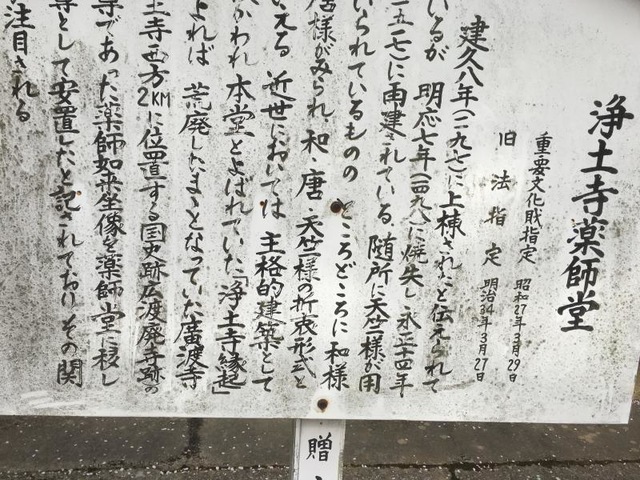 浄土寺薬師堂
重要文化財指定 昭和27年3月29日
旧法指定 明治34年3月27日
建久八年(一一九七)に上棟されたと伝えられて
いるが 明応七年(一四九八)に焼失し永正十四年
五一七)に再建されている 随所に天竺様が用
いられているものの ところどころに和様
唐様がみられ和・唐 天竺様の折衷形式と
いえる 近世においては 主格的建築として
かわれ 本堂とよばれていた「浄土寺縁起」
よれば 荒廃したままとなっていた廣渡寺
土寺西方2KMに位置する国史跡広渡廃寺跡の
寺であった薬師如来坐像を薬師堂に移し
尊として安置したと記されておりその関
注目される
贈